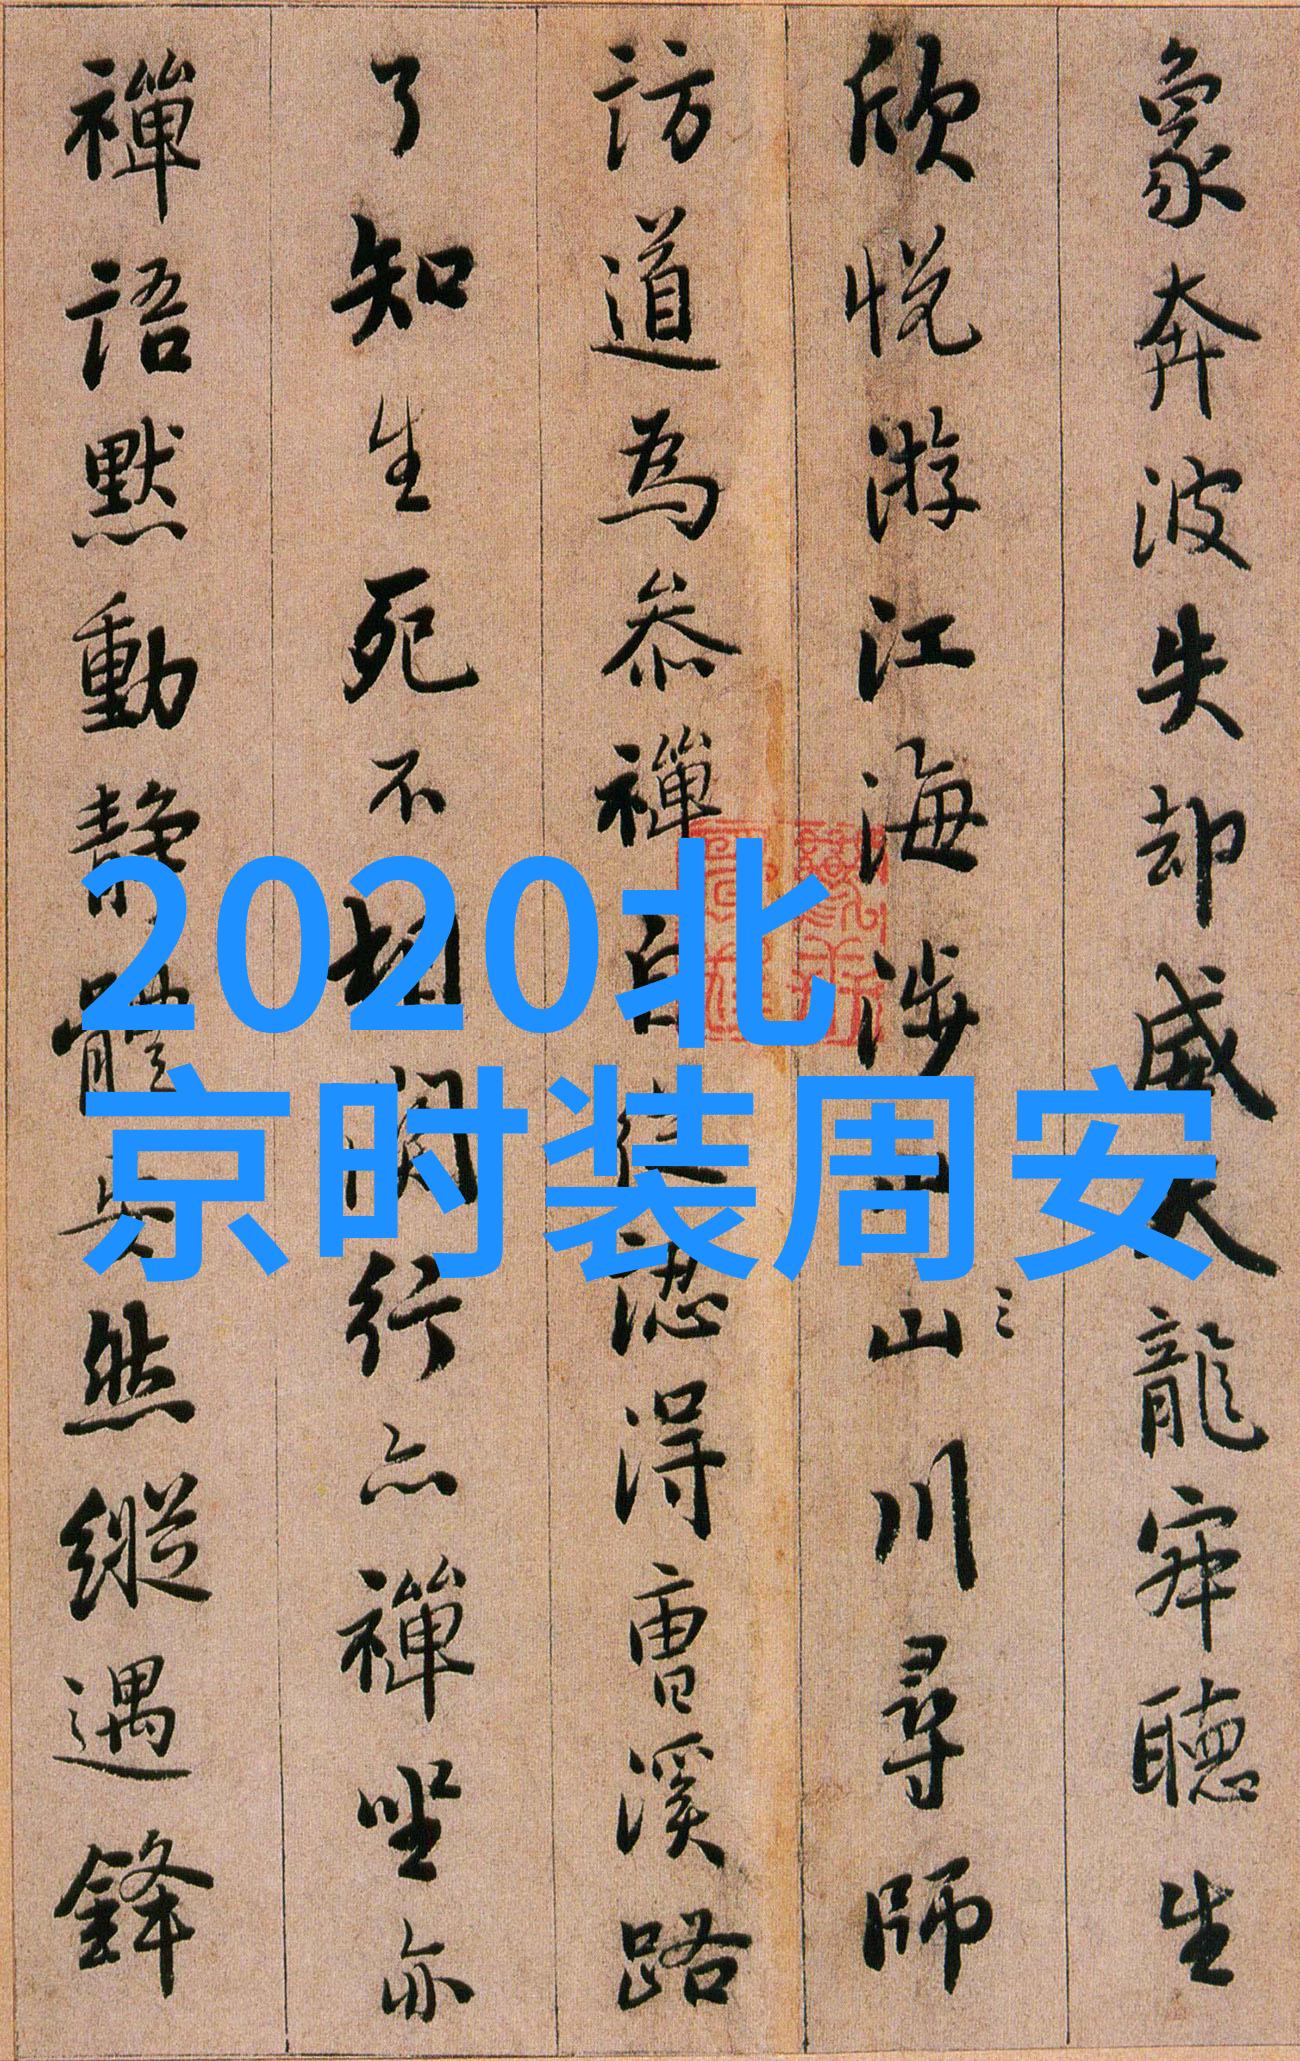 象奔波失却威天龍寂聽生
欣悅游江海涉山山川尋師
訪道為參禪自從認得曹溪路
了知生死不相關行亦禪坐亦
禪語默動靜體安然縱遇鋒
2020北
京时装周安